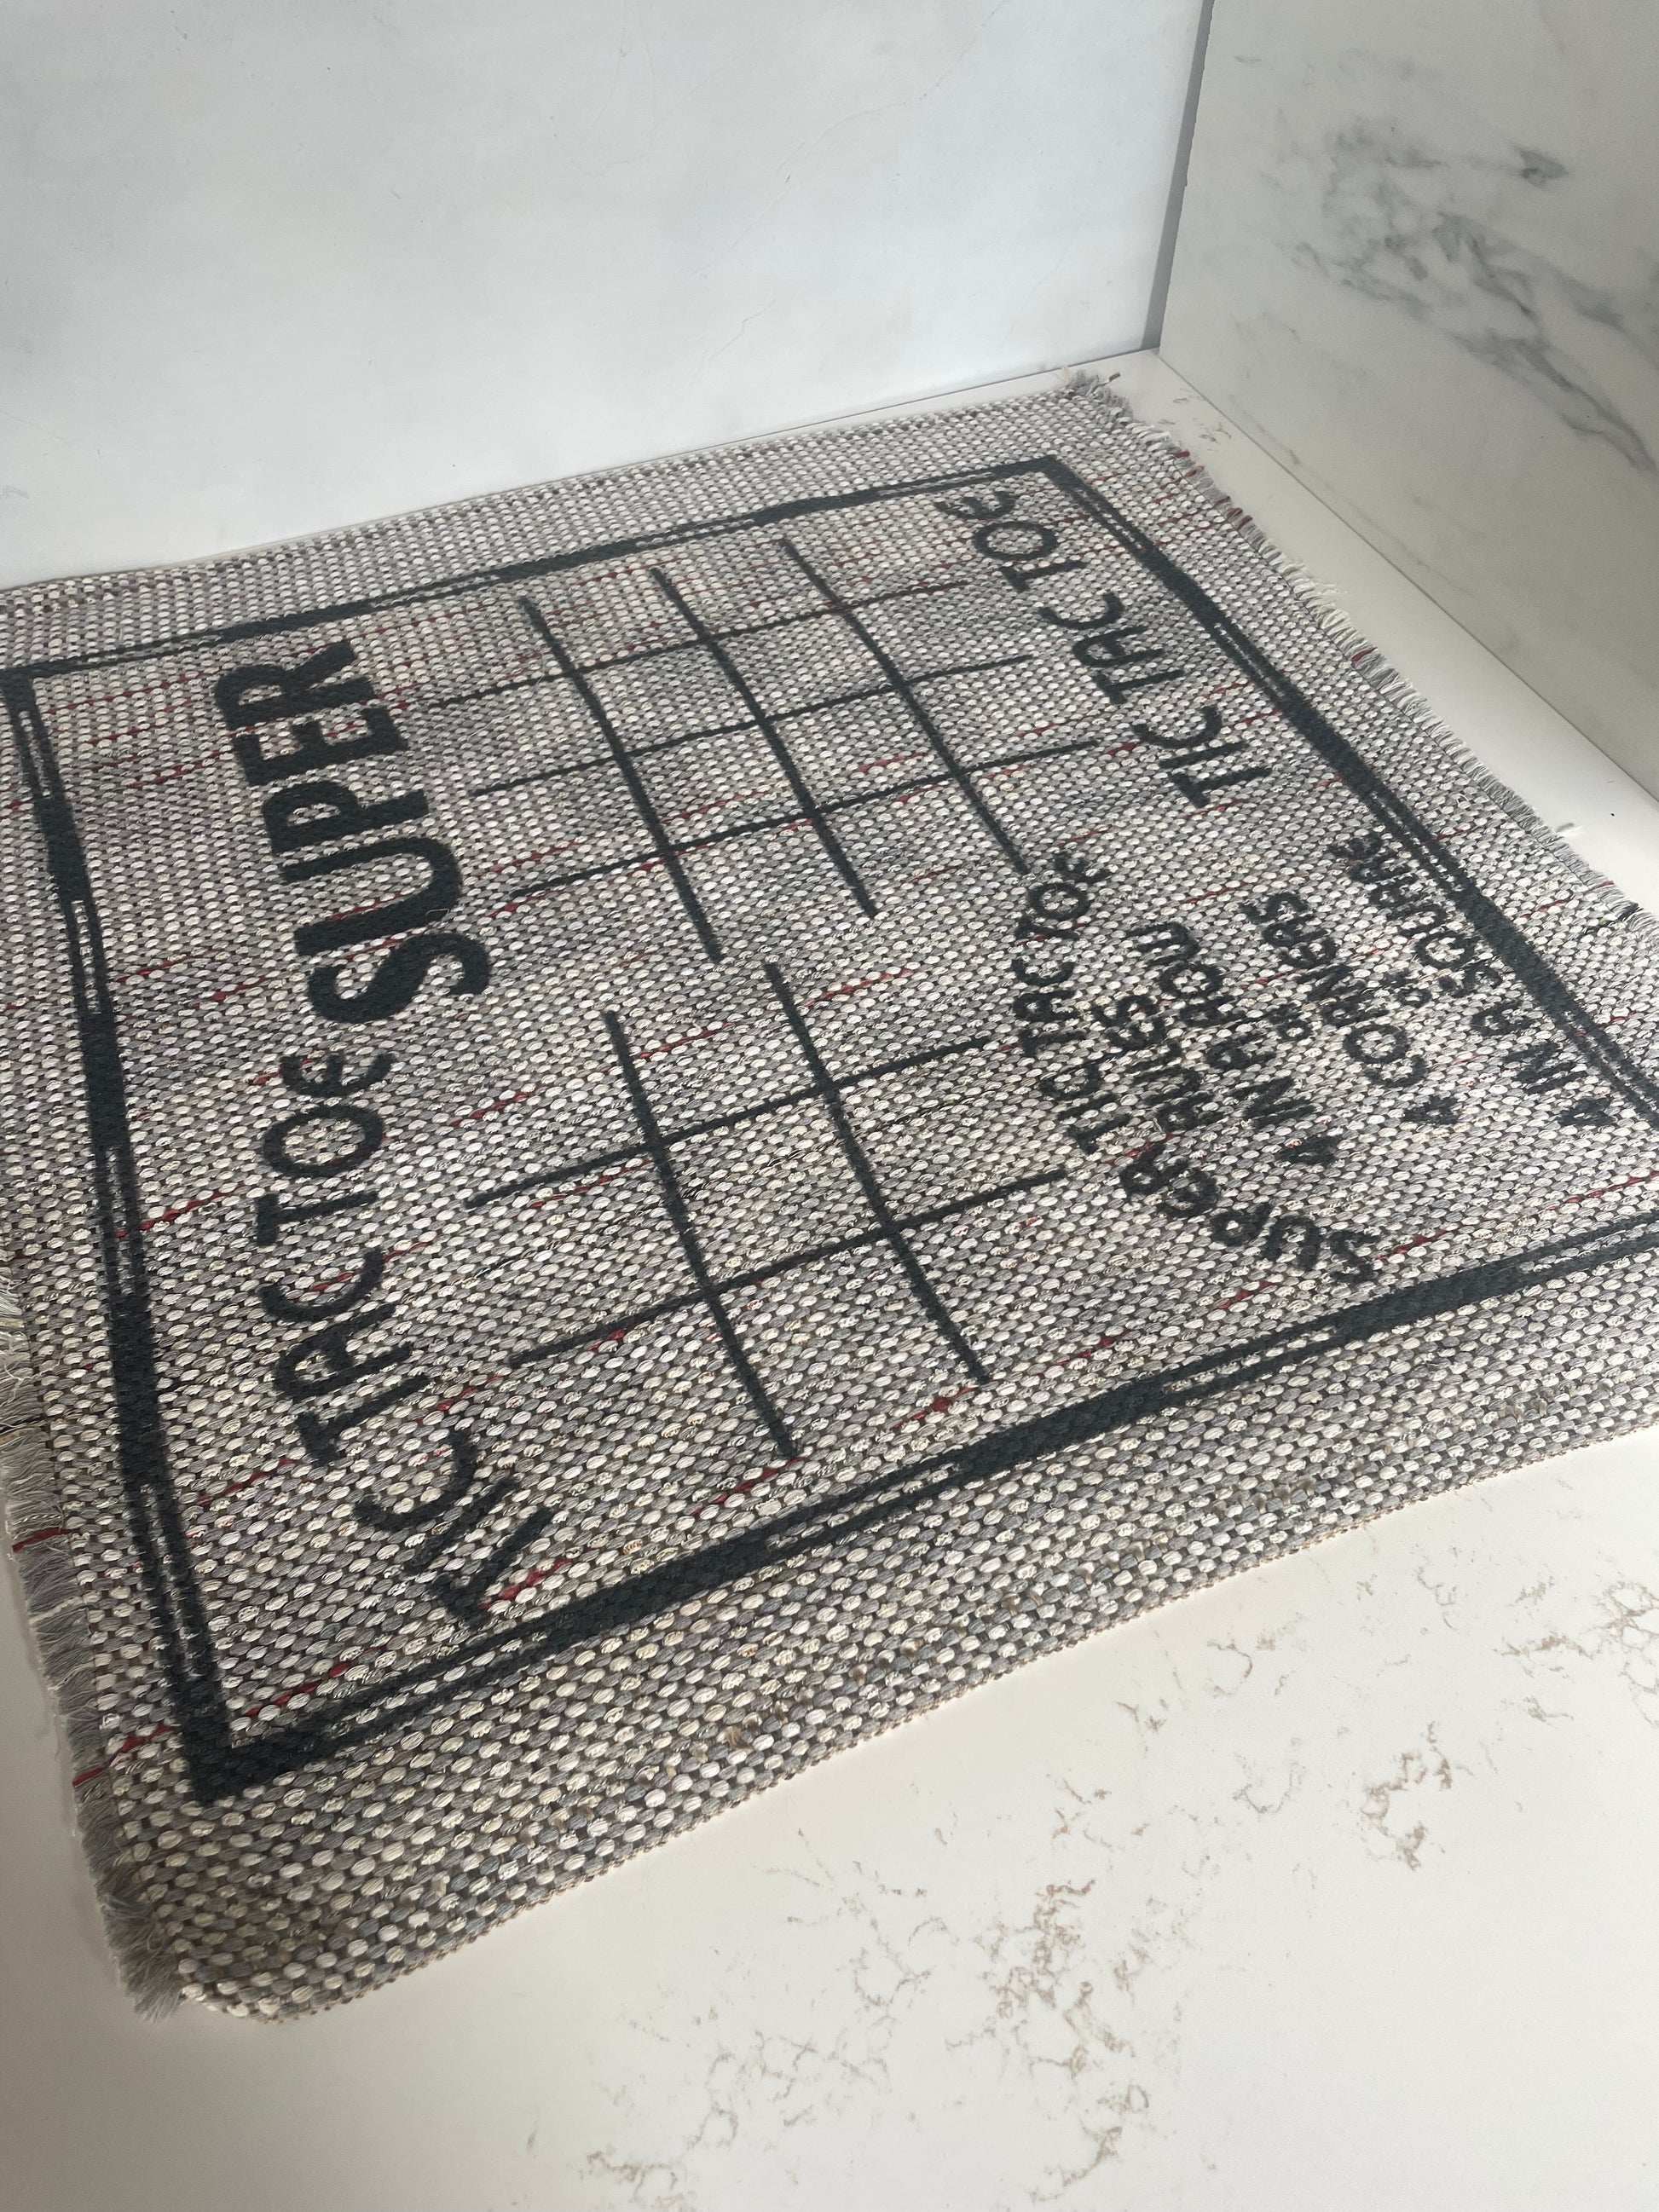 TIC TAC TOE
SUPER
TIC TAC TOE
SUPER TIC TAC TOE
RULES:
4 IN A ROW
or
4 CORNERS
or
4 IN A SQUARE